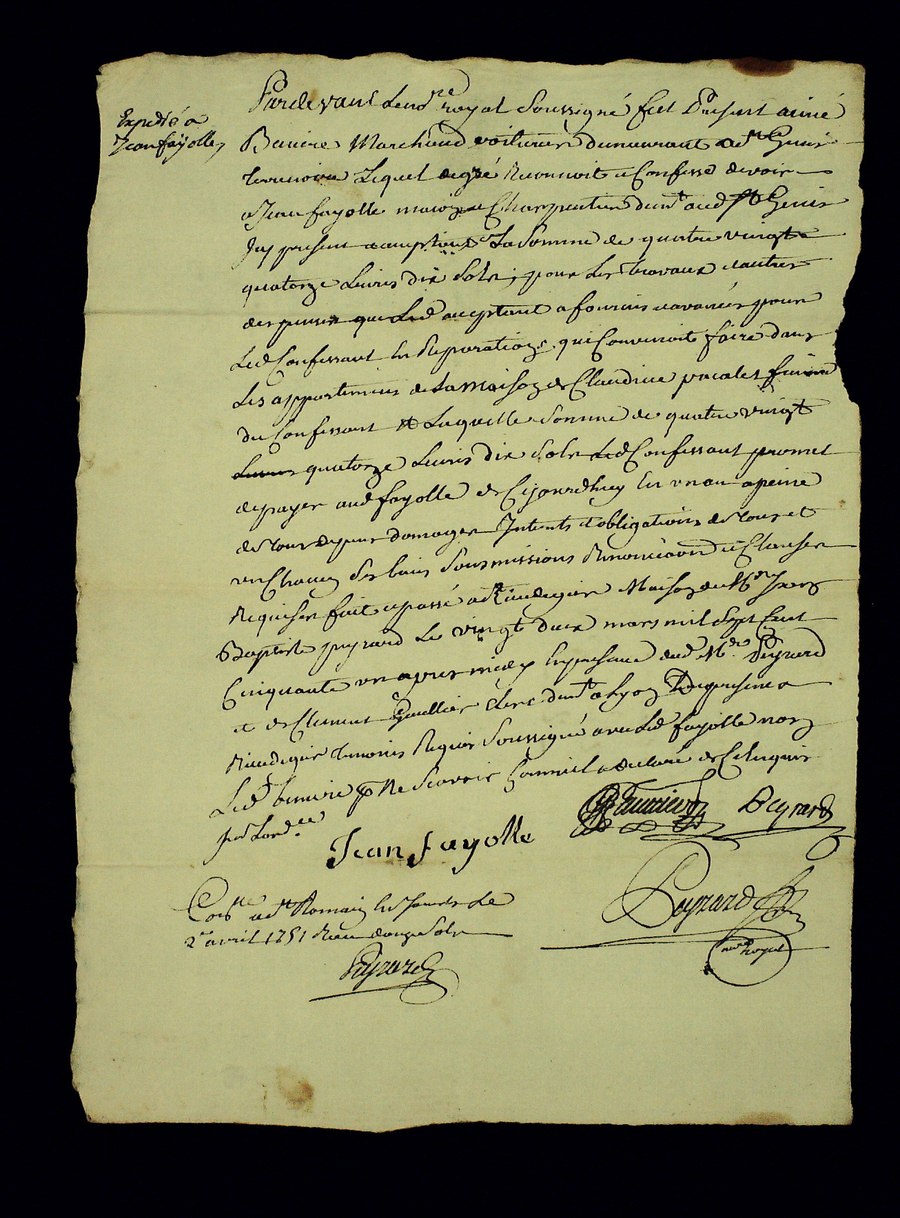 Expedié a
Jean fayolle
Pardevant Le no.re royal Soussigné fut Present aimé
Baniere Marchand voiturier demeurant a S.t Genis
terrenoire Lequel de gré Reconnoit et Confesse devoir
a Jean fayolle maitre Charpentier dem.t aud S.t Genis
Icy present et acceptant La Somme de quatre vingt
quatorze Livres dix Sols, pour Les travaux et autres
despenses que Led acceptant a fournis et avancés pour
Led Confessant En Reparations qui Convenoit faire dans
Les appartements de La maison de Claudine pacalet femme
du Confessant Laquelle Somme de quatre vingt
Livres quatorze Livres dix Sols Led Confessant promet
de payer aud fayolle de Cejourdhuy En un an a peine
de tous depens domages Interets et obligations de tous et
un Chacun Ses biens Soumissions Renonciaons et Clauses
Requises fait et passé a Rivedegier Maison de M.r Jean
Baptiste peyrard Le vingt deux mars mil Sept Cent
Cinquante un apres midy En presence dud M.r Peyrard
et de Clement Clerc dem.t a Lyon De present a
Rivedegier temoins Requis Soussignés avec Led fayolle non
Led baniere p.r Ne Scavoir Comme il a declaré de Ce Enquis
Jean fayolle
Peyrard
Peyrard
no.re Royal
Con.lle a S.t Romain En Jarest Le
2.e avril 1751 Reçu douze Sols
Peyrard